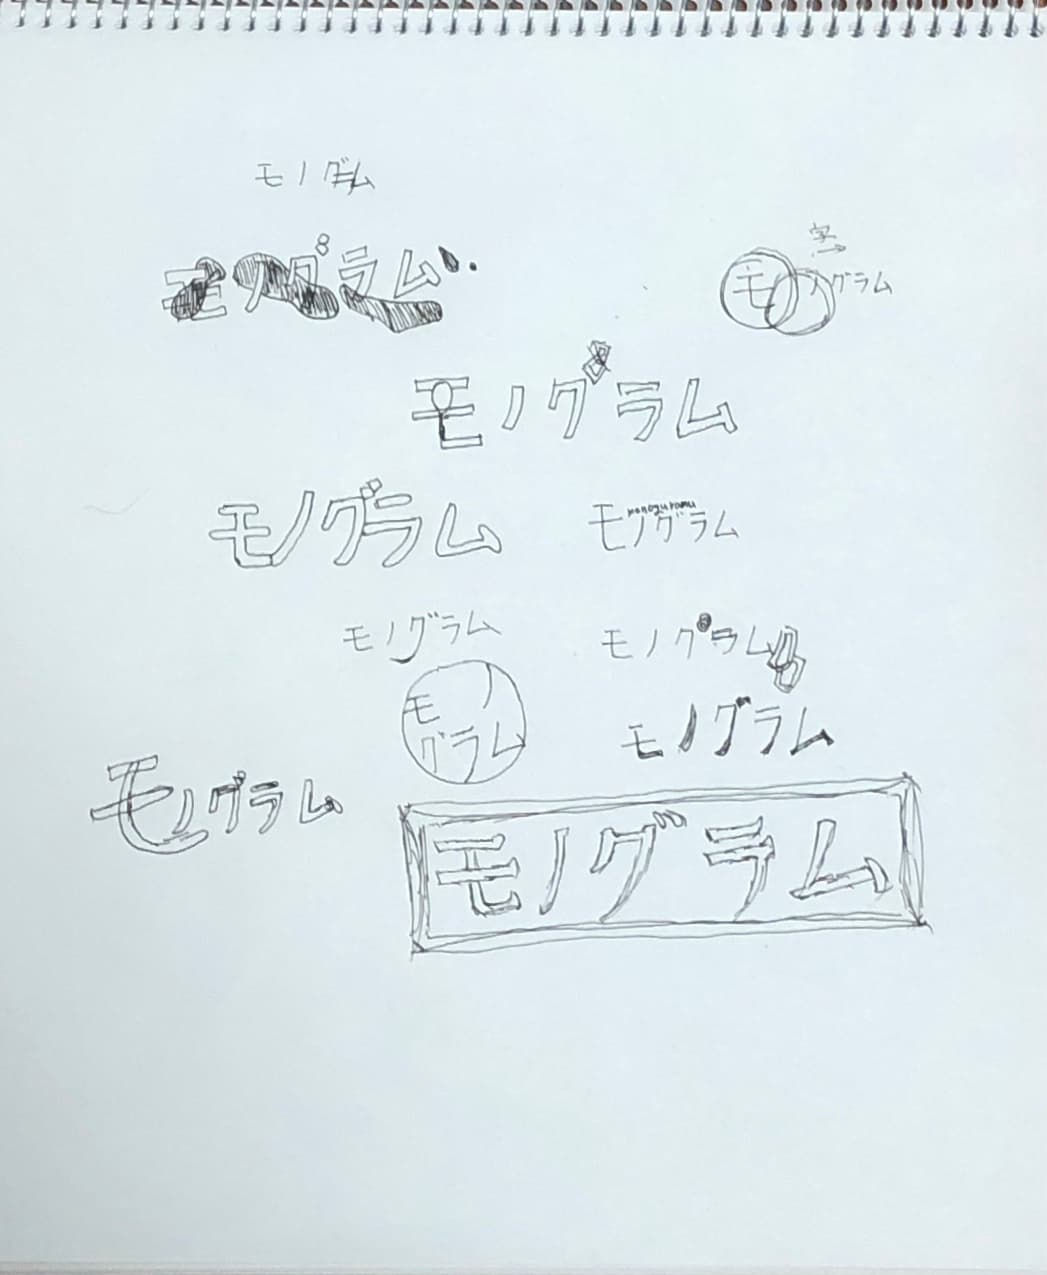 モノグラム
モノグラム
字
モノグラム
モノグラム
モノグラム
monoguramu
モノグラム
モノグラム
モノグラム
モノ
グラム
モノグラム
モノグラム
モノグラム